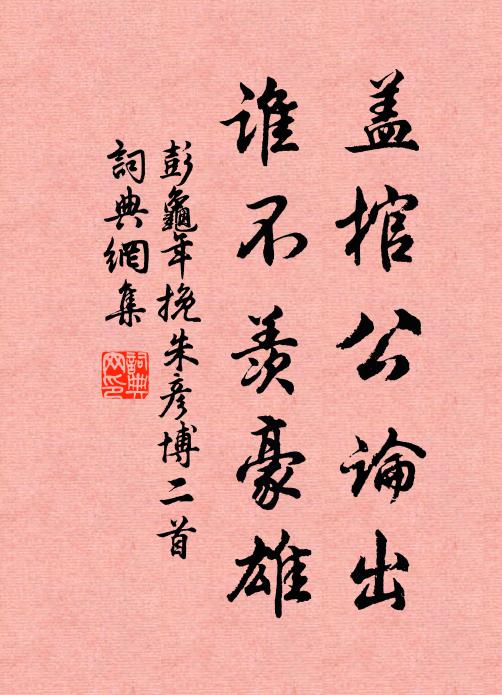 盖棺公論出
誰不羨豪雄
彭龜年挽朱彦博二首
詞典網集
詞典网印